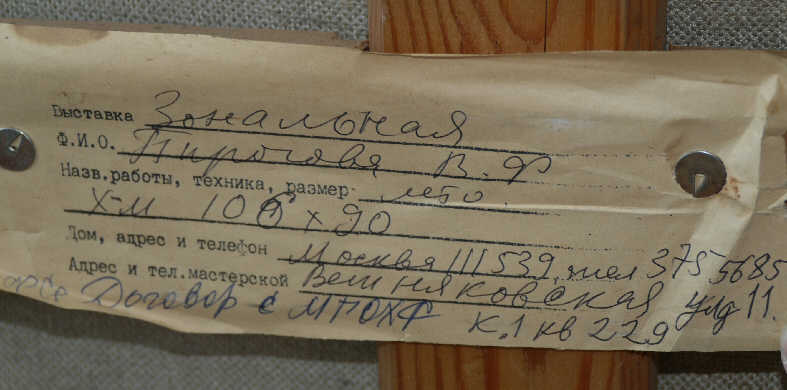 Выставка Зональная
Ф.И.О. Пирогова В.Ф
Назв.работы, техника, размер лето.
х-м 100 х 90
Дом, адрес и телефон Москва 111539, тел 375 5685
Адрес и тел.мастерской Вешняковская ул д 11.
Договор с МПОХФ к.1 кв 229